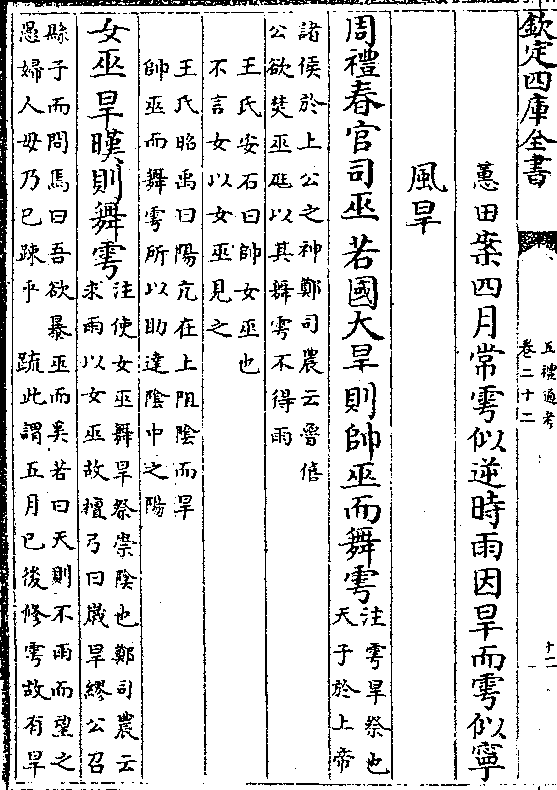 欽定四庫全書
五禮通考
卷二十二
十二
蕙田案四月常雩似逆時雨因旱而雩似寧
風旱
周禮春官司巫若國大旱則帥巫而舞雩注雩旱祭也
天子於上帝
諸侯於上公之神鄭司農云魯僖
公欲焚巫尫以其舞雩不得雨
王氏安石曰帥女巫也
不言女以女巫見之
王氏昭禹曰陽亢在上阻陰而旱
帥巫而舞雩所以助達陰中之陽
女巫旱暵則舞雩注使女巫舞旱祭崇陰也鄭司農云
求雨以女巫故檀弓曰歲旱繆公召
縣子而問焉曰吾欲暴巫而奚若曰天則不雨而望之
愚婦人毋乃已疎乎 疏此謂五月已後修雩故有旱